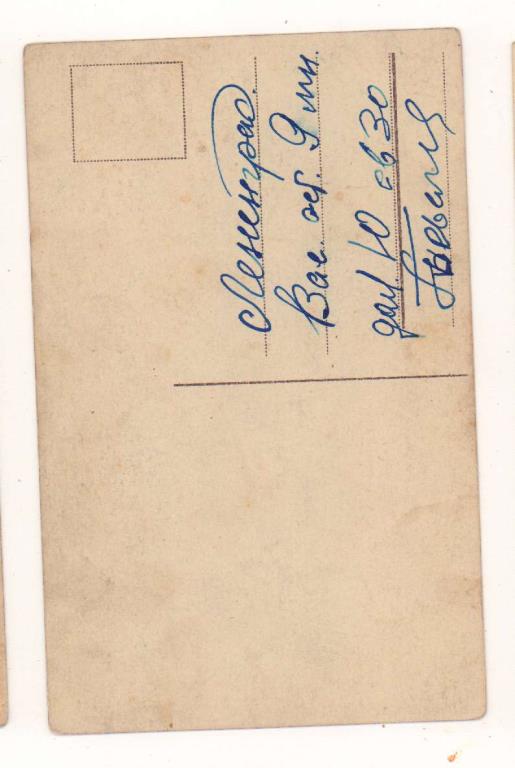 Ленинград.
Вас. ост. 9 лин.
дом 10 кв 30